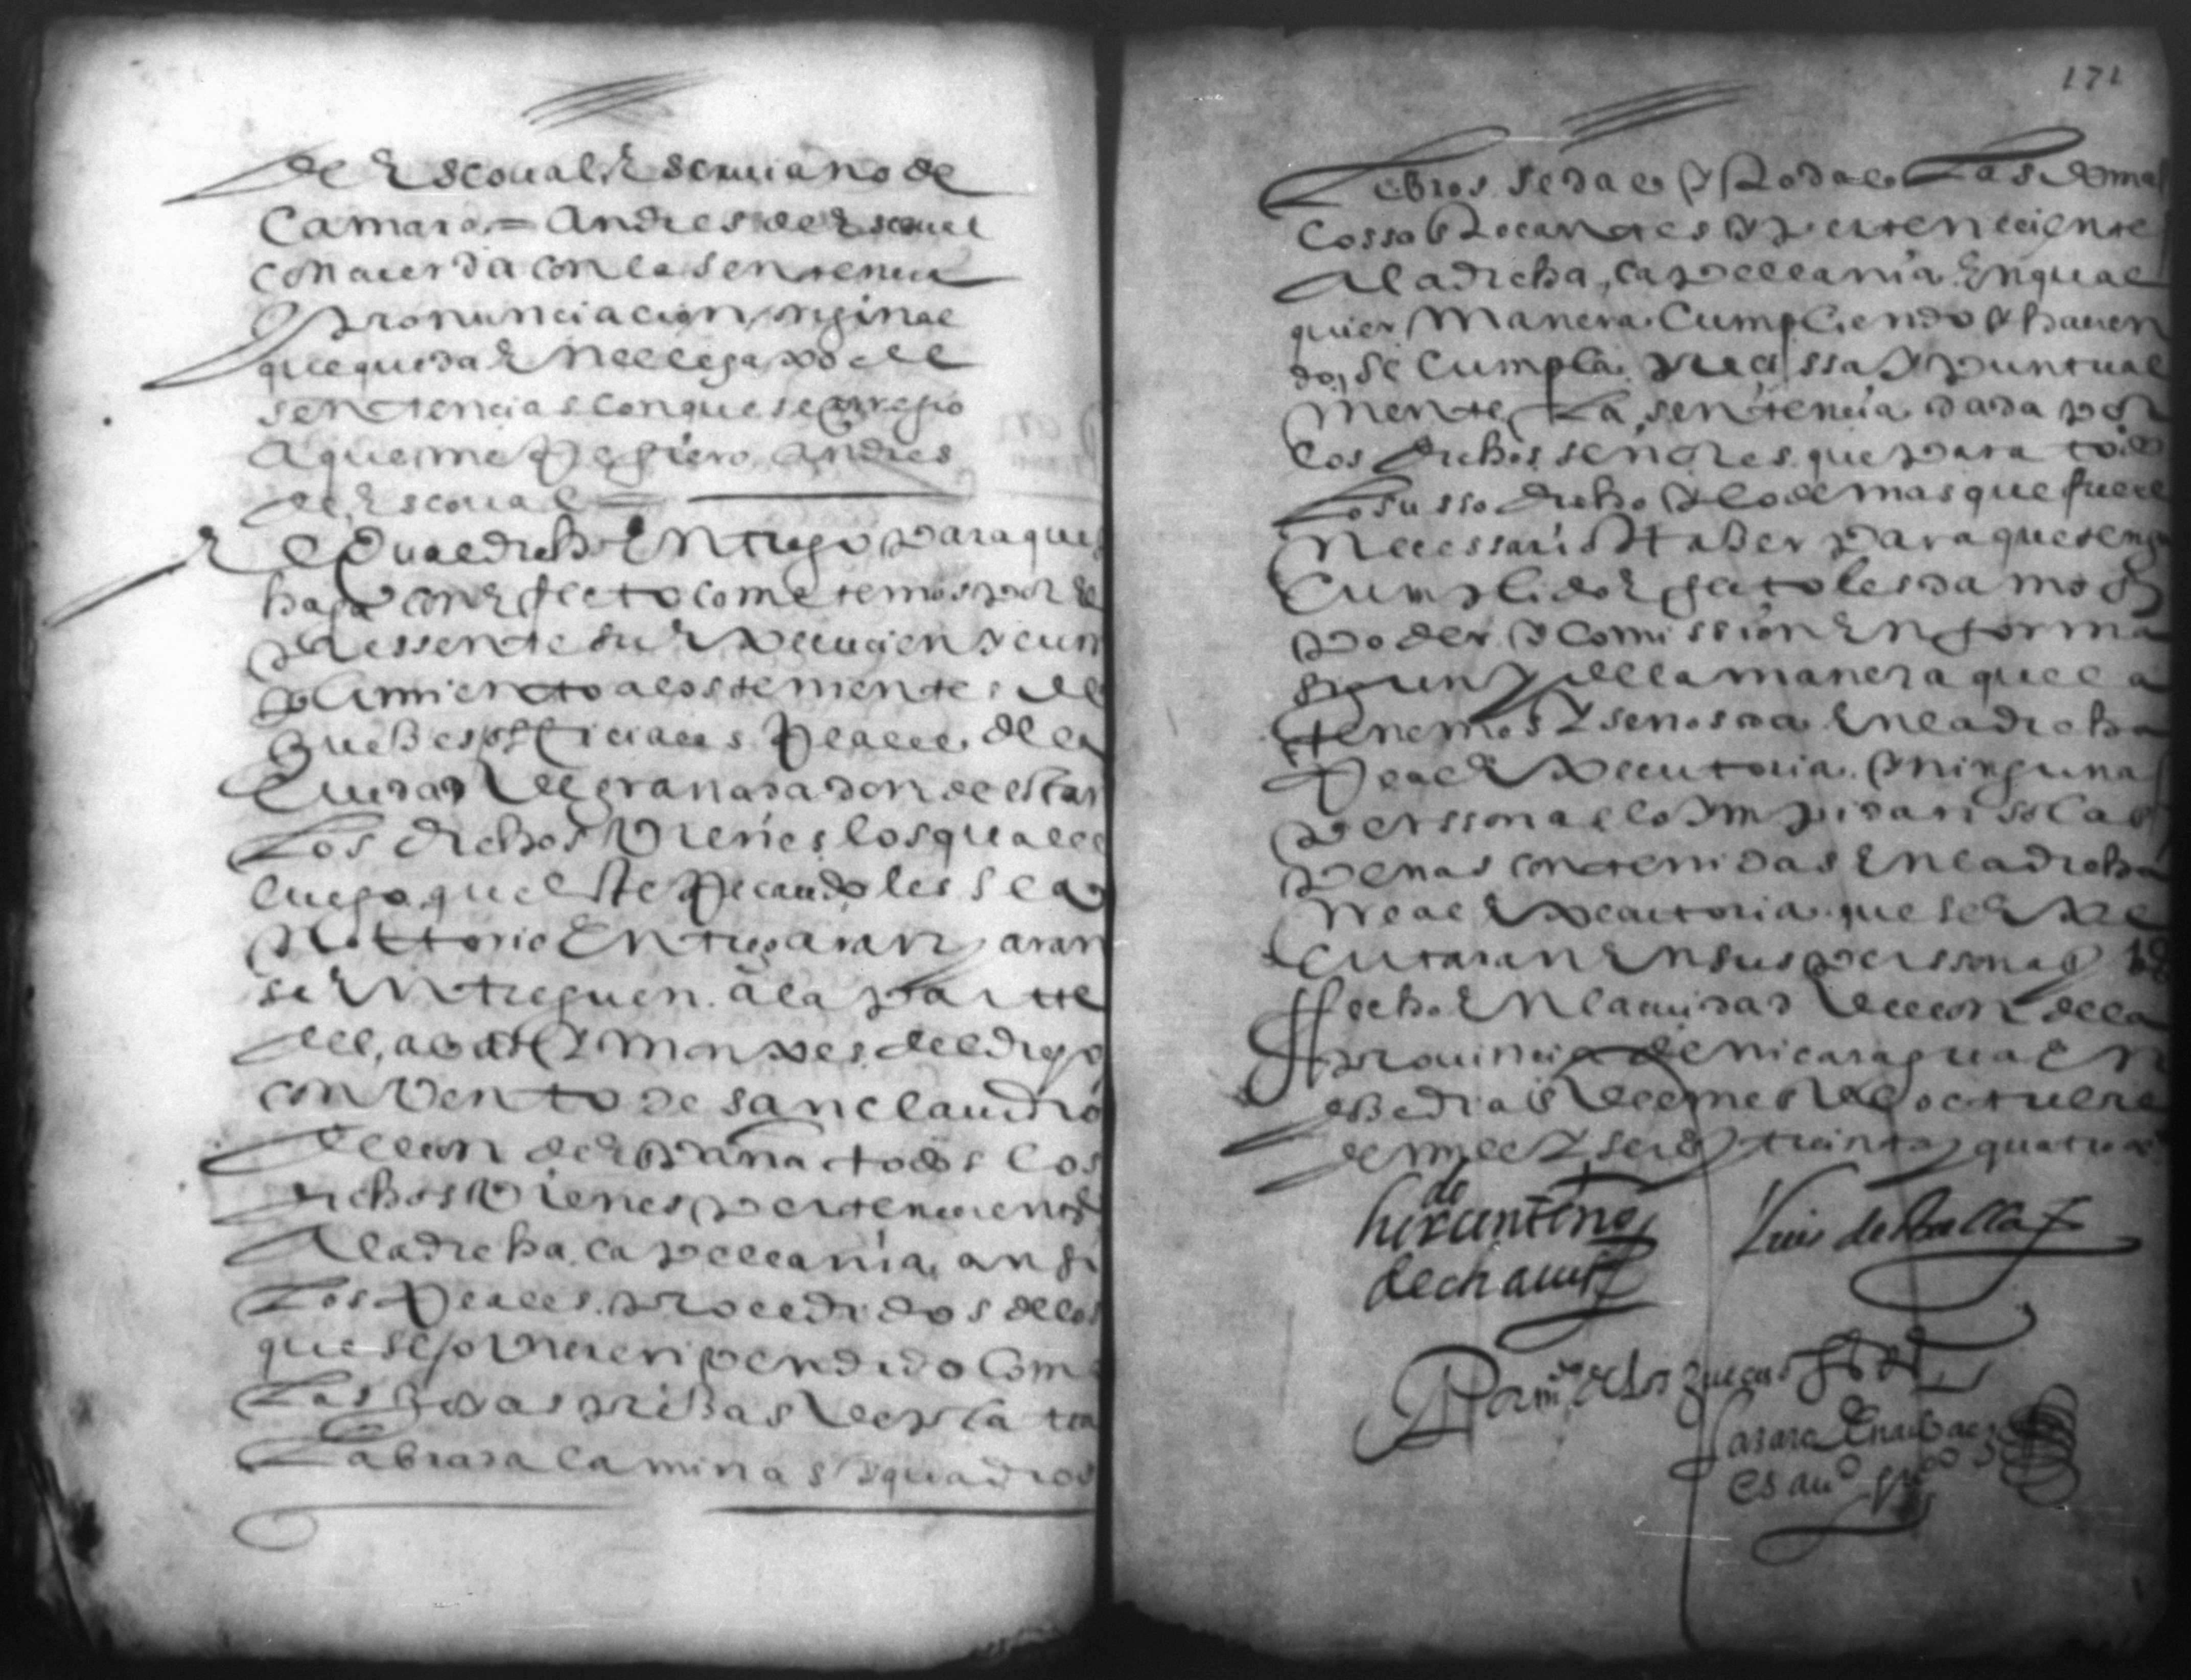 de Escoual Escriuano de
Camara = Andres de Escoual
concuerda con la sentencia
y Pronunciacion original
que queda En el legaxo de
sentencias con que se corregio
a que me Refiero Andres
de Escoual =
El qual dicho Entrego para que
haga con Efecto cometemos por El
pressente su Execucion y cum
plimiento a los tenientes de
Jueces officiales Reales de la
Ciudad de granada donde estan
Los dichos Vienes los quales
luego que este Recaudo les sea
Notorio Entregaran y aran
se Entreguen a la parte
del abad y monxes del dicho
conVento de san claudio
de leon de España todos los
dichos Vienes pertenecientes
A la dicha capellania ansi
Los Reales procedidos de los
que se ovieren vendido Como
Las Joyas pieças de plata
Labrada laminas y quadros
171
Libros sedas y Rodas Las demas
Cossas tocantes y pertenecientes
A la dicha capellania En qual
quier Manera Cumpliendo y hacien
do Se Cumpla precissa y puntual
mente La sentencia dada por
los dichos señores que para todo
Lo susso dicho y lo demas que fuere
Necessario Haber para que tenga
Cumplido Efecto les damos
poder y comission En forma
segun y de la manera que la
tenemos y se nos da En la dicha
Real Executoria y ninguna
perssona se lo Impidan so las
penas contenidas En la dicha
Real Executoria que se Exe
cutaran En sus perssonas
Fecho En la ciudad de leon de la
prouincia de nicaragua En
dias del mes de octubre
de mill y seisos treinta y quatro a
de chaues
Luis de